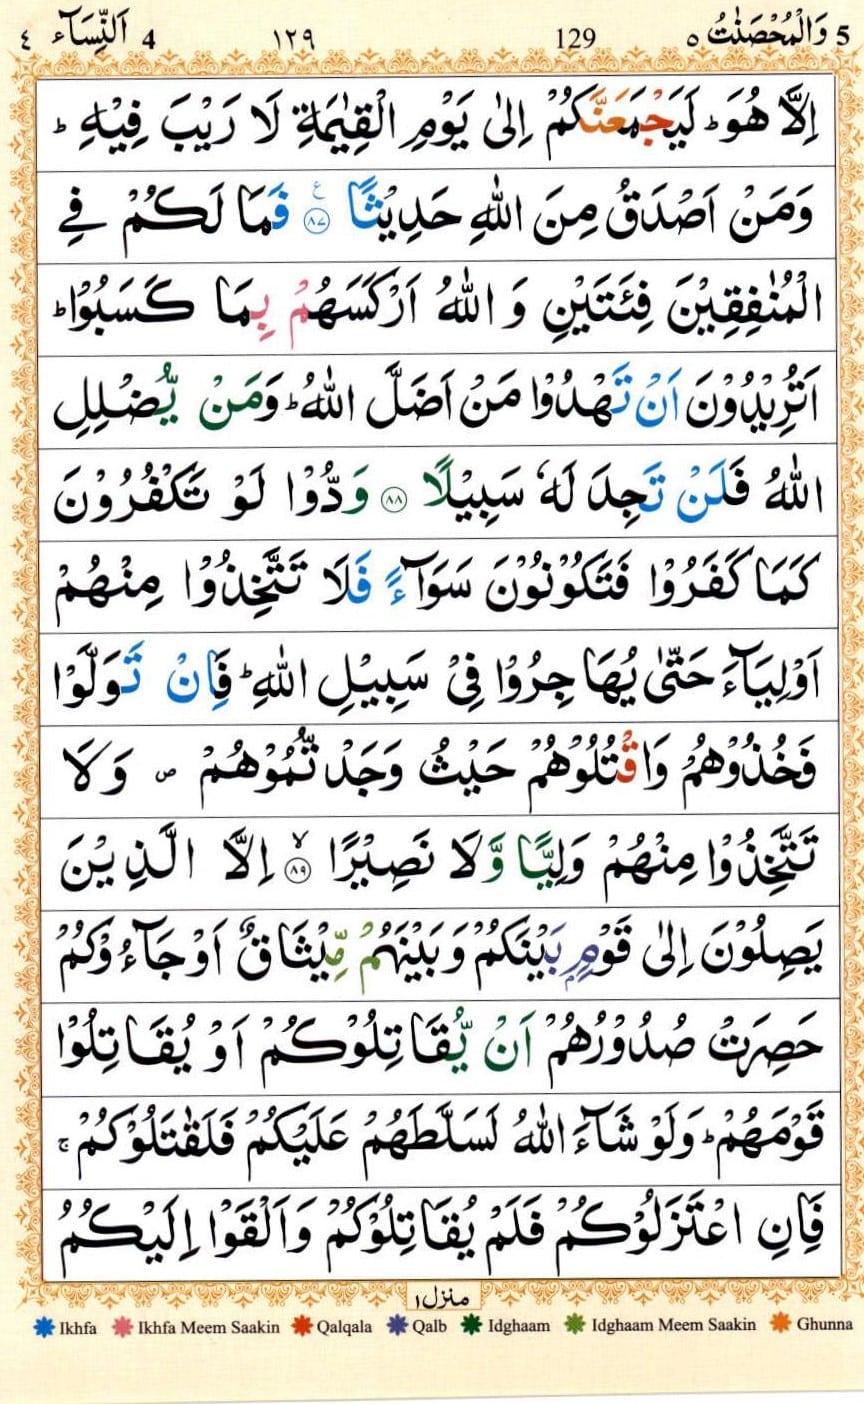 5 وَالْمُحْصَنٰتُ ٥ 129 ١٢٩ 4 اَلنِّسَآء ٤
اِلَّا هُوَ ؕ لَيَجْمَعَنَّكُمْ اِلٰى يَوْمِ الْقِيٰمَةِ لَا رَيْبَ فِيْهِ ؕ
وَمَنْ اَصْدَقُ مِنَ اللّٰهِ حَدِيْثًا ۧ ﴿٨٧﴾ فَمَا لَكُمْ فِي
الْمُنٰفِقِيْنَ فِئَتَيْنِ وَاللّٰهُ اَرْكَسَهُمْ بِمَا كَسَبُوْا ؕ
اَتُرِيْدُوْنَ اَنْ تَهْدُوْا مَنْ اَضَلَّ اللّٰهُ ؕ وَمَنْ يُّضْلِلِ
اللّٰهُ فَلَنْ تَجِدَ لَهٗ سَبِيْلًا ﴿٨٨﴾ وَدُّوْا لَوْ تَكْفُرُوْنَ
كَمَا كَفَرُوْا فَتَكُوْنُوْنَ سَوَآءً فَلَا تَتَّخِذُوْا مِنْهُمْ
اَوْلِيَآءَ حَتّٰى يُهَاجِرُوْا فِيْ سَبِيْلِ اللّٰهِ ؕ فَاِنْ تَوَلَّوْا
فَخُذُوْهُمْ وَاقْتُلُوْهُمْ حَيْثُ وَجَدْتُّمُوْهُمْ ۪ وَلَا
تَتَّخِذُوْا مِنْهُمْ وَلِيًّا وَّلَا نَصِيْرًا ۙ ﴿٨٩﴾ اِلَّا الَّذِيْنَ
يَصِلُوْنَ اِلٰى قَوْمٍۭ بَيْنَكُمْ وَبَيْنَهُمْ مِّيْثَاقٌ اَوْ جَآءُوْكُمْ
حَصِرَتْ صُدُوْرُهُمْ اَنْ يُّقَاتِلُوْكُمْ اَوْ يُقَاتِلُوْا
قَوْمَهُمْ ؕ وَلَوْ شَآءَ اللّٰهُ لَسَلَّطَهُمْ عَلَيْكُمْ فَلَقٰتَلُوْكُمْ ۚ
فَاِنِ اعْتَزَلُوْكُمْ فَلَمْ يُقَاتِلُوْكُمْ وَاَلْقَوْا اِلَيْكُمُ
منزل ١
Ikhfa Ikhfa Meem Saakin Qalqala Qalb Idghaam Idghaam Meem Saakin Ghunna